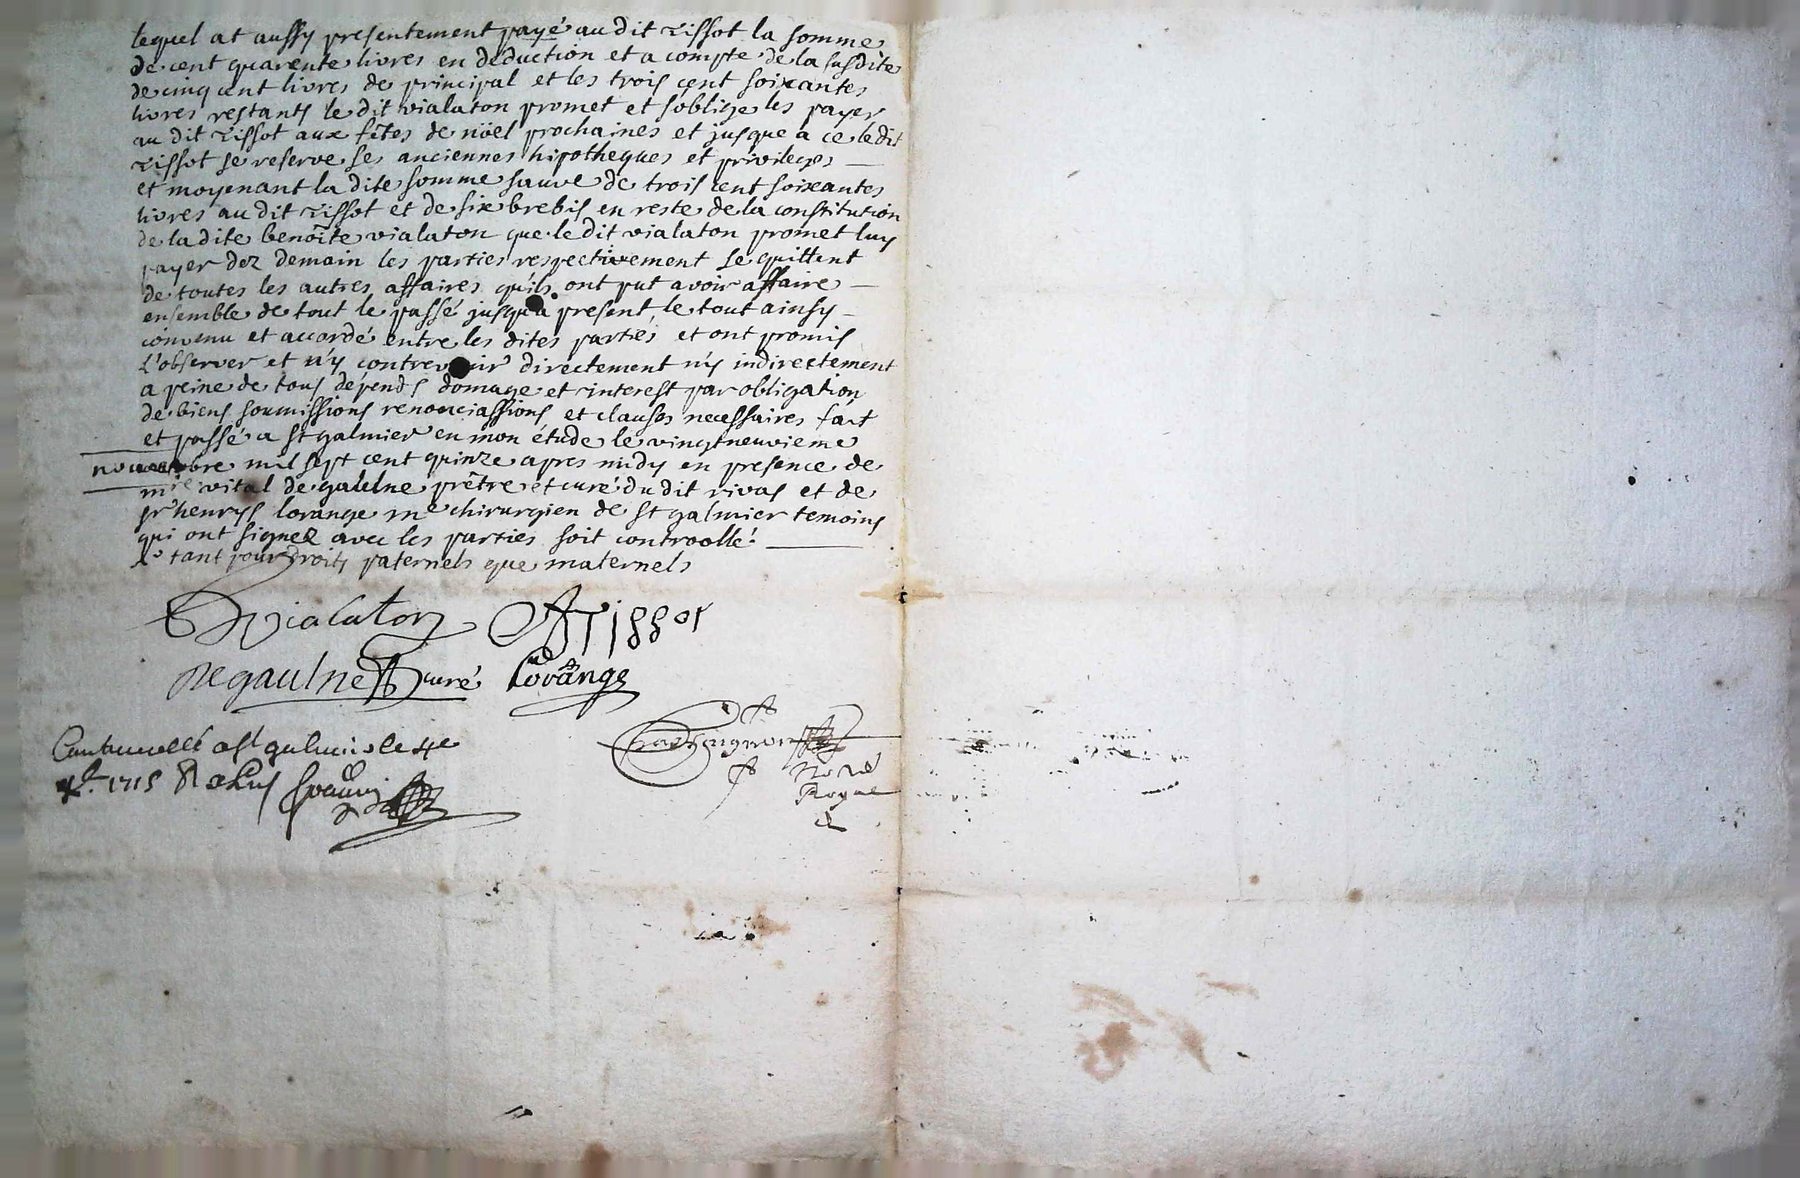 lequel at aussy presentement payé au dit tissot la somme
de cent quarente livres en deduction et a compte de la susdite
de cinq cent livres de principal et les trois cent soixantes
livres restants le dit vialaton promet et soblige les payer
au dit tissot aux fêtes de nöel prochaines et jusque a ce le dit
tissot se reserve ses anciennes hipotheques et privileges
et moyenant la dite somme sauve de trois cent soixantes
livres au dit tissot et de six brebis en reste de la constitution
de la dite benoîte vialaton que le dit vialaton promet luy
payer dez demain les parties respectivement se quittent
de toutes les autres affaires qu'ils ont put avoir affaire
ensemble de tout le passé jusqu'a present, le tout ainsy
convenu et accordé entre les dites parties et ont promis
L'observer et n'y contrevenir directement n'y indirectement
a peine de tous dépends domage et interest par obligation
de biens soumissions renonciassions et clauses necessaires fait
et passé a st galmier en mon étude le vingtneuvieme
novembre mil sept cent quinze apres midy en presence de
mre vital de gaulne prêtre et curé du dit rivas et de
sr henrys lorange me chirurgien de st galmier temoins
qui ont signez avec les parties soit controollé
tant pour droits paternels que maternels
Vialaton ATissot
Degaulne curé Lorange
Controllé a st galmier le 4e
1715
No Re
Royal